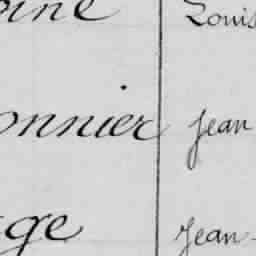 oine Louis
onnier Jean
ge Jean